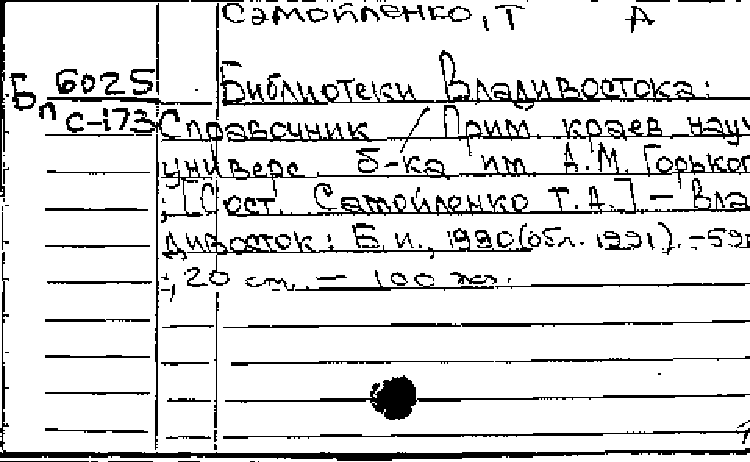 Самойленко, Т А
Бп 6025
с-173
Библиотеки Владивостока:
Справочник / Прим. краев. науч
универс. б-ка им. А.М. Горьког
; [Сост. Самойленко Т.А.] - Вла
дивосток: Б.и., 1990 (обл. 1991). - 59с
; 20 см. - 100 экз.